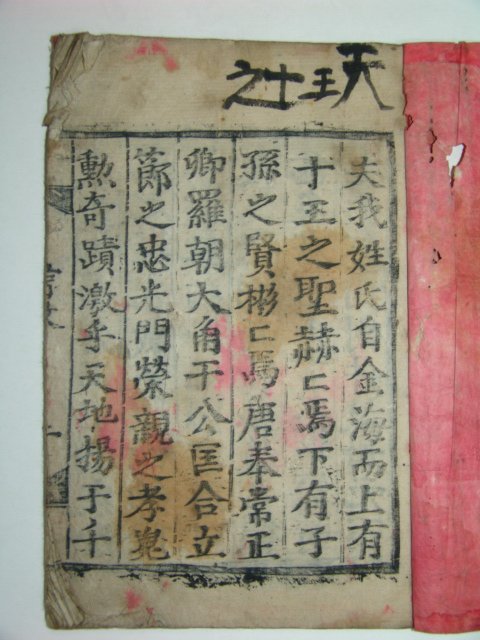 天王十之
夫我姓氏自金海而上有
十王之聖赫〻焉下有子
孫之賢彬〻焉唐奉常正
卿羅朝大角干公匡合立
節之忠光門榮親之孝嵬
勳奇蹟激乎天地揚于千